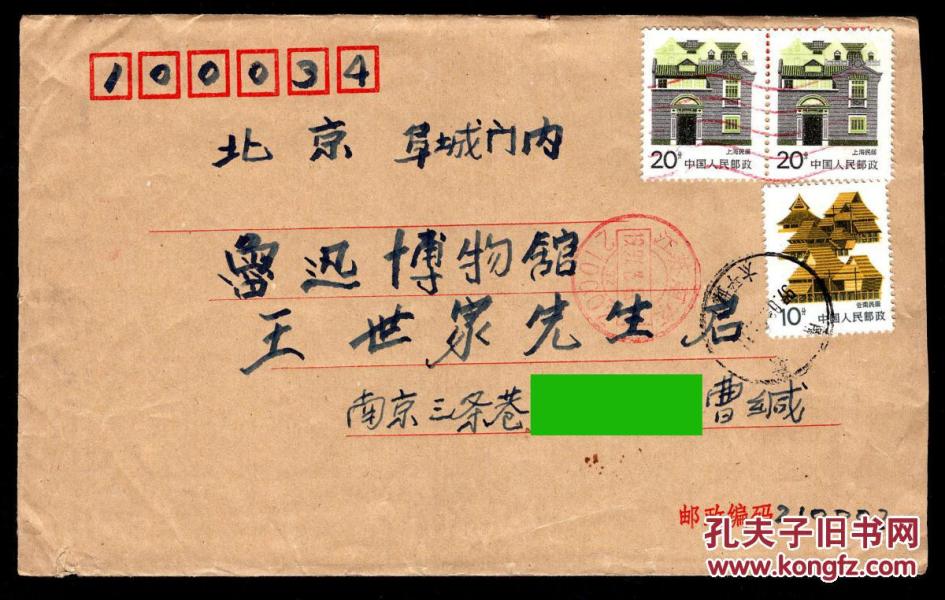 100034
上海民居
20分 中国人民邮政
上海民居
20分 中国人民邮政
北京 阜城门内
云南民居
10分 中国人民邮政
鲁迅博物館
王世家先生启
南京三条巷
曹缄
邮政编码210002
孔夫子旧书网
www.kongfz.com